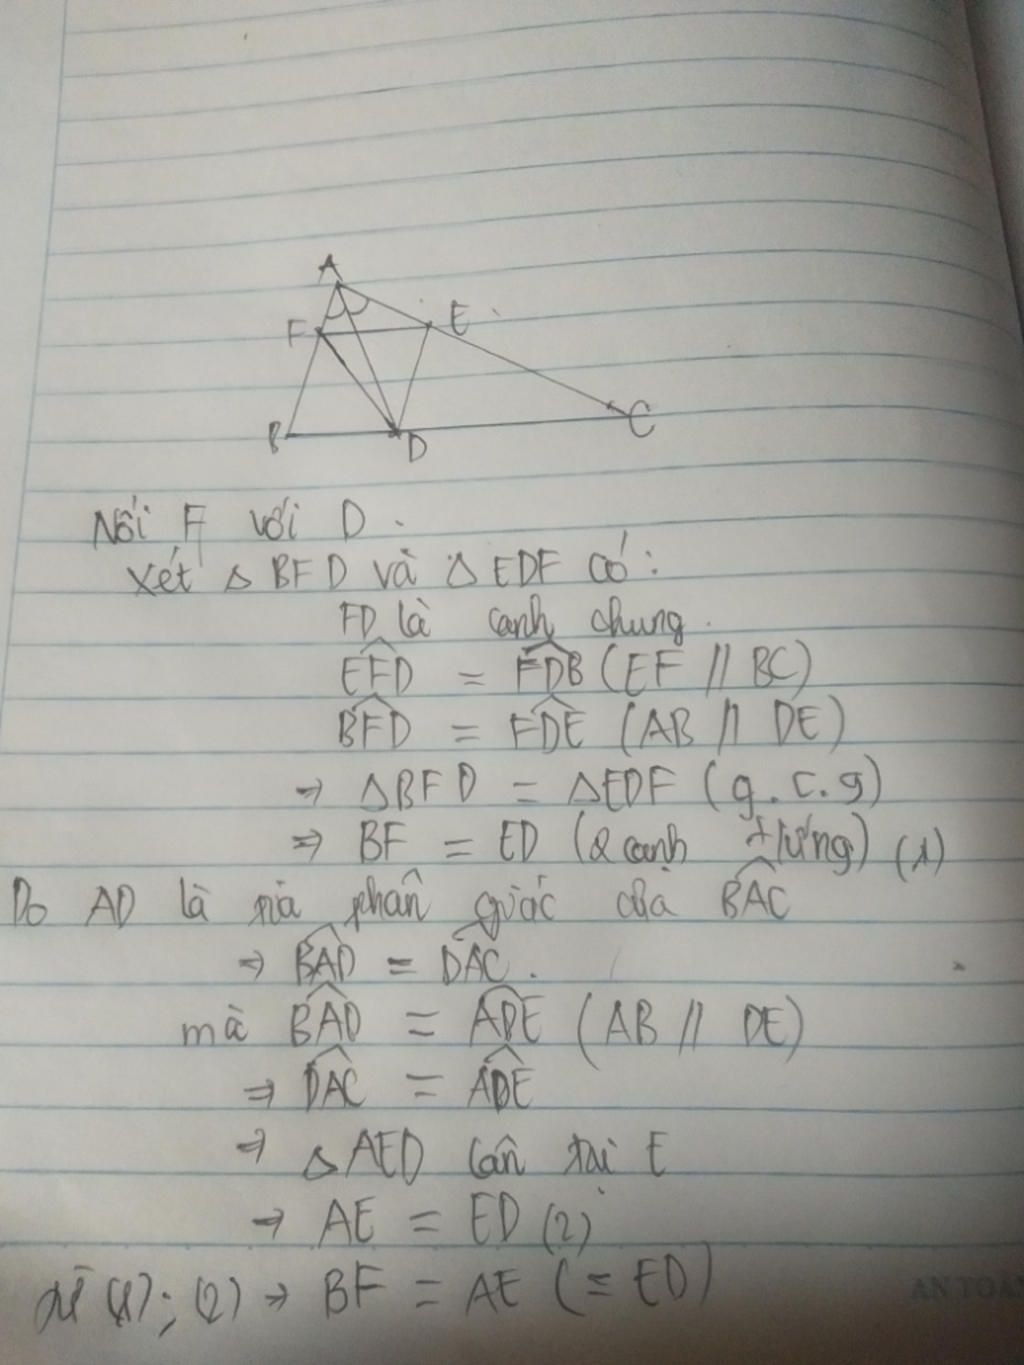 A
F
E
B
D
C
Nối F với D.
Xét Δ BFD và Δ EDF có:
FD là cạnh chung.
EFD = FDB (EF // BC)
BFD = FDE (AB // DE)
⇒ ΔBFD = ΔEDF (g.c.g)
⇒ BF = ED (2 cạnh tương ứng) (1)
Do AD là tia phân giác của BAC
⇒ BAD = DAC.
mà BAD = ADE (AB // DE)
⇒ DAC = ADE
⇒ Δ AED cân tại E
⇒ AE = ED (2)
Từ (1); (2) ⇒ BF = AE (= ED)
AN TOÀN